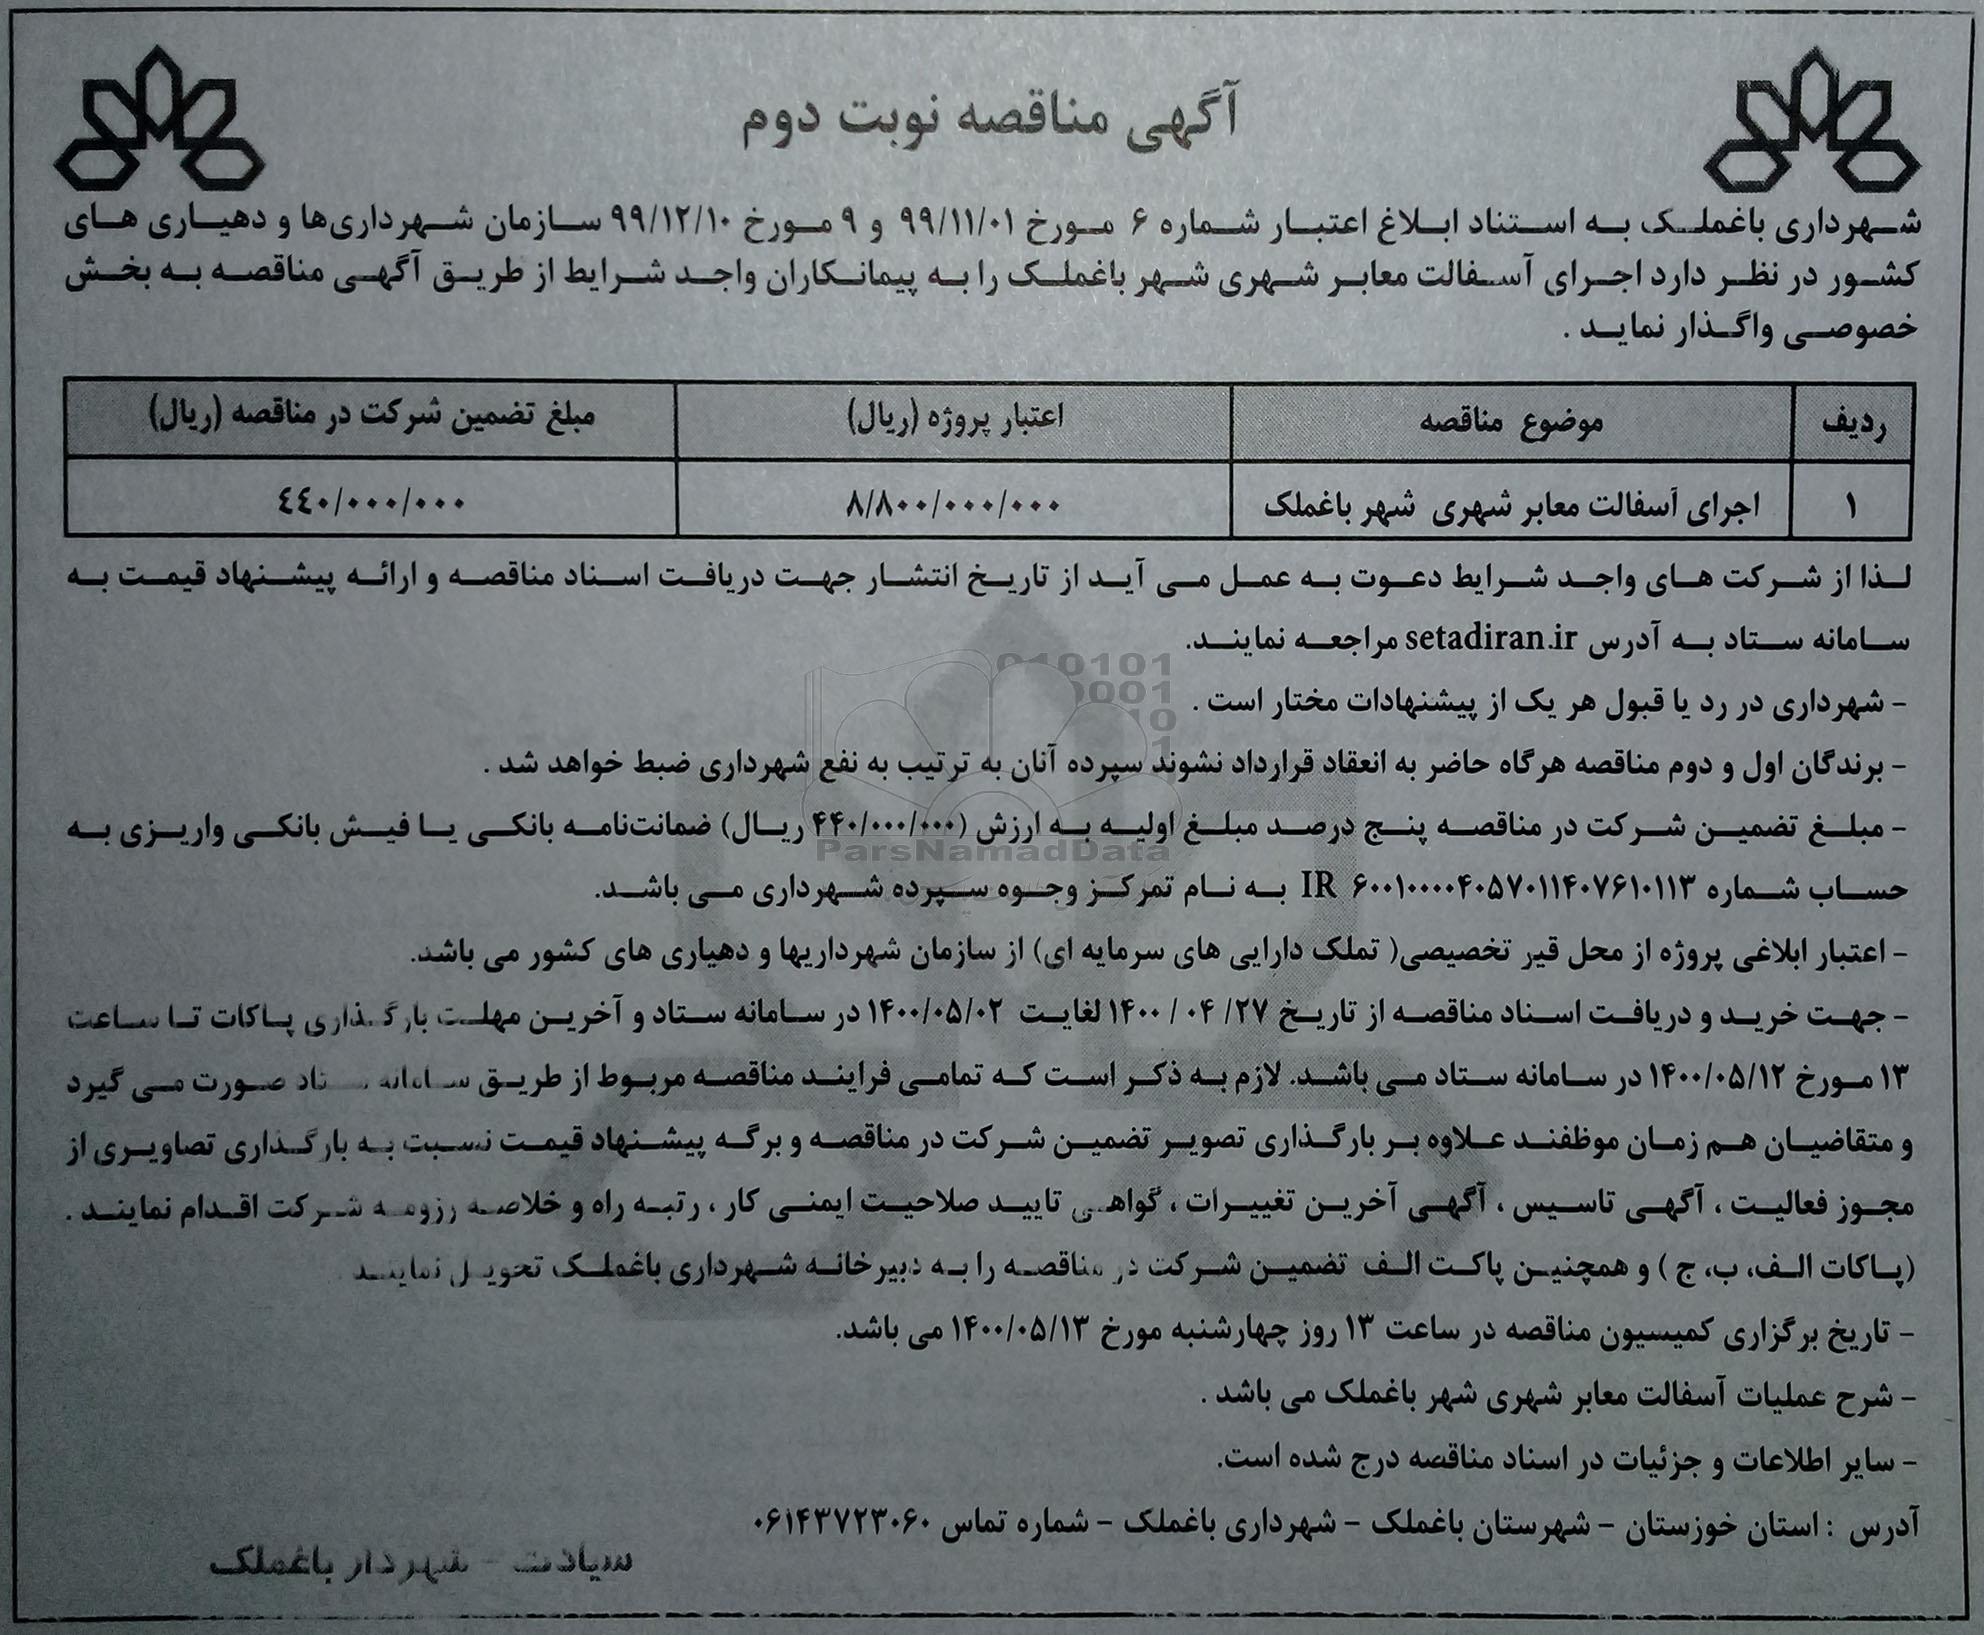 آگهی مناقصه نوبت دوم
شهرداری باغملک به استناد ابلاغ اعتبار شماره ۶ مورخ ۹۹/۱۱/۰۱ و ۹ مورخ ۹۹/۱۲/۱۰ سازمان شهرداری‌ها و دهیاری های
کشور در نظر دارد اجرای آسفالت معابر شهری شهر باغملک را به پیمانکاران واجد شرایط از طریق آگهی مناقصه به بخش
خصوصی واگذار نماید .
ردیف موضوع مناقصه اعتبار پروژه (ریال) مبلغ تضمین شرکت در مناقصه (ریال)
۱ اجرای آسفالت معابر شهری شهر باغملک ۸/۸۰۰/۰۰۰/۰۰۰ ٤٤٠/٠٠٠/٠٠٠
لذا از شرکت های واجد شرایط دعوت به عمل می آید از تاریخ انتشار جهت دریافت اسناد مناقصه و ارائه پیشنهاد قیمت به
سامانه ستاد به آدرس setadiran.ir مراجعه نمایند.
- شهرداری در رد یا قبول هر یک از پیشنهادات مختار است .
- برندگان اول و دوم مناقصه هرگاه حاضر به انعقاد قرارداد نشوند سپرده آنان به ترتیب به نفع شهرداری ضبط خواهد شد .
- مبلغ تضمین شرکت در مناقصه پنج درصد مبلغ اولیه به ارزش (۴۴۰/۰۰۰/۰۰۰ ریال) ضمانت‌نامه بانکی یا فیش بانکی واریزی به
حساب شماره IR ۶۰۰۱۰۰۰۰۴۰۵۷۰۱۱۴۰۷۶۱۰۱۱۳ به نام تمرکز وجوه سپرده شهرداری می باشد.
- اعتبار ابلاغی پروژه از محل قیر تخصیصی( تملک دارایی های سرمایه ای) از سازمان شهرداریها و دهیاری های کشور می باشد.
- جهت خرید و دریافت اسناد مناقصه از تاریخ ۲۷/ ۰۴ / ۱۴۰۰ لغایت ۱۴۰۰/۰۵/۰۲ در سامانه ستاد و آخرین مهلت بارگذاری پاکات تا ساعت
۱۳ مورخ ۱۴۰۰/۰۵/۱۲ در سامانه ستاد می باشد. لازم به ذکر است که تمامی فرایند مناقصه مربوط از طریق سامانه ستاد صورت می گیرد
و متقاضیان هم زمان موظفند علاوه بر بارگذاری تصویر تضمین شرکت در مناقصه و برگه پیشنهاد قیمت نسبت به بارگذاری تصاویری از
مجوز فعالیت ، آگهی تاسیس ، آگهی آخرین تغییرات ، گواهی تایید صلاحیت ایمنی کار ، رتبه راه و خلاصه رزومه شرکت اقدام نمایند .
(پاکات الف، ب، ج ) و همچنین پاکت الف تضمین شرکت در مناقصه را به دبیرخانه شهرداری باغملک تحویل نمایند .
- تاریخ برگزاری کمیسیون مناقصه در ساعت ۱۳ روز چهارشنبه مورخ ۱۴۰۰/۰۵/۱۳ می باشد.
- شرح عملیات آسفالت معابر شهری شهر باغملک می باشد .
- سایر اطلاعات و جزئیات در اسناد مناقصه درج شده است.
آدرس : استان خوزستان - شهرستان باغملک - شهرداری باغملک - شماره تماس ۰۶۱۴۳۷۲۳۰۶۰
سیادت - شهردار باغملک
ParsNamadData